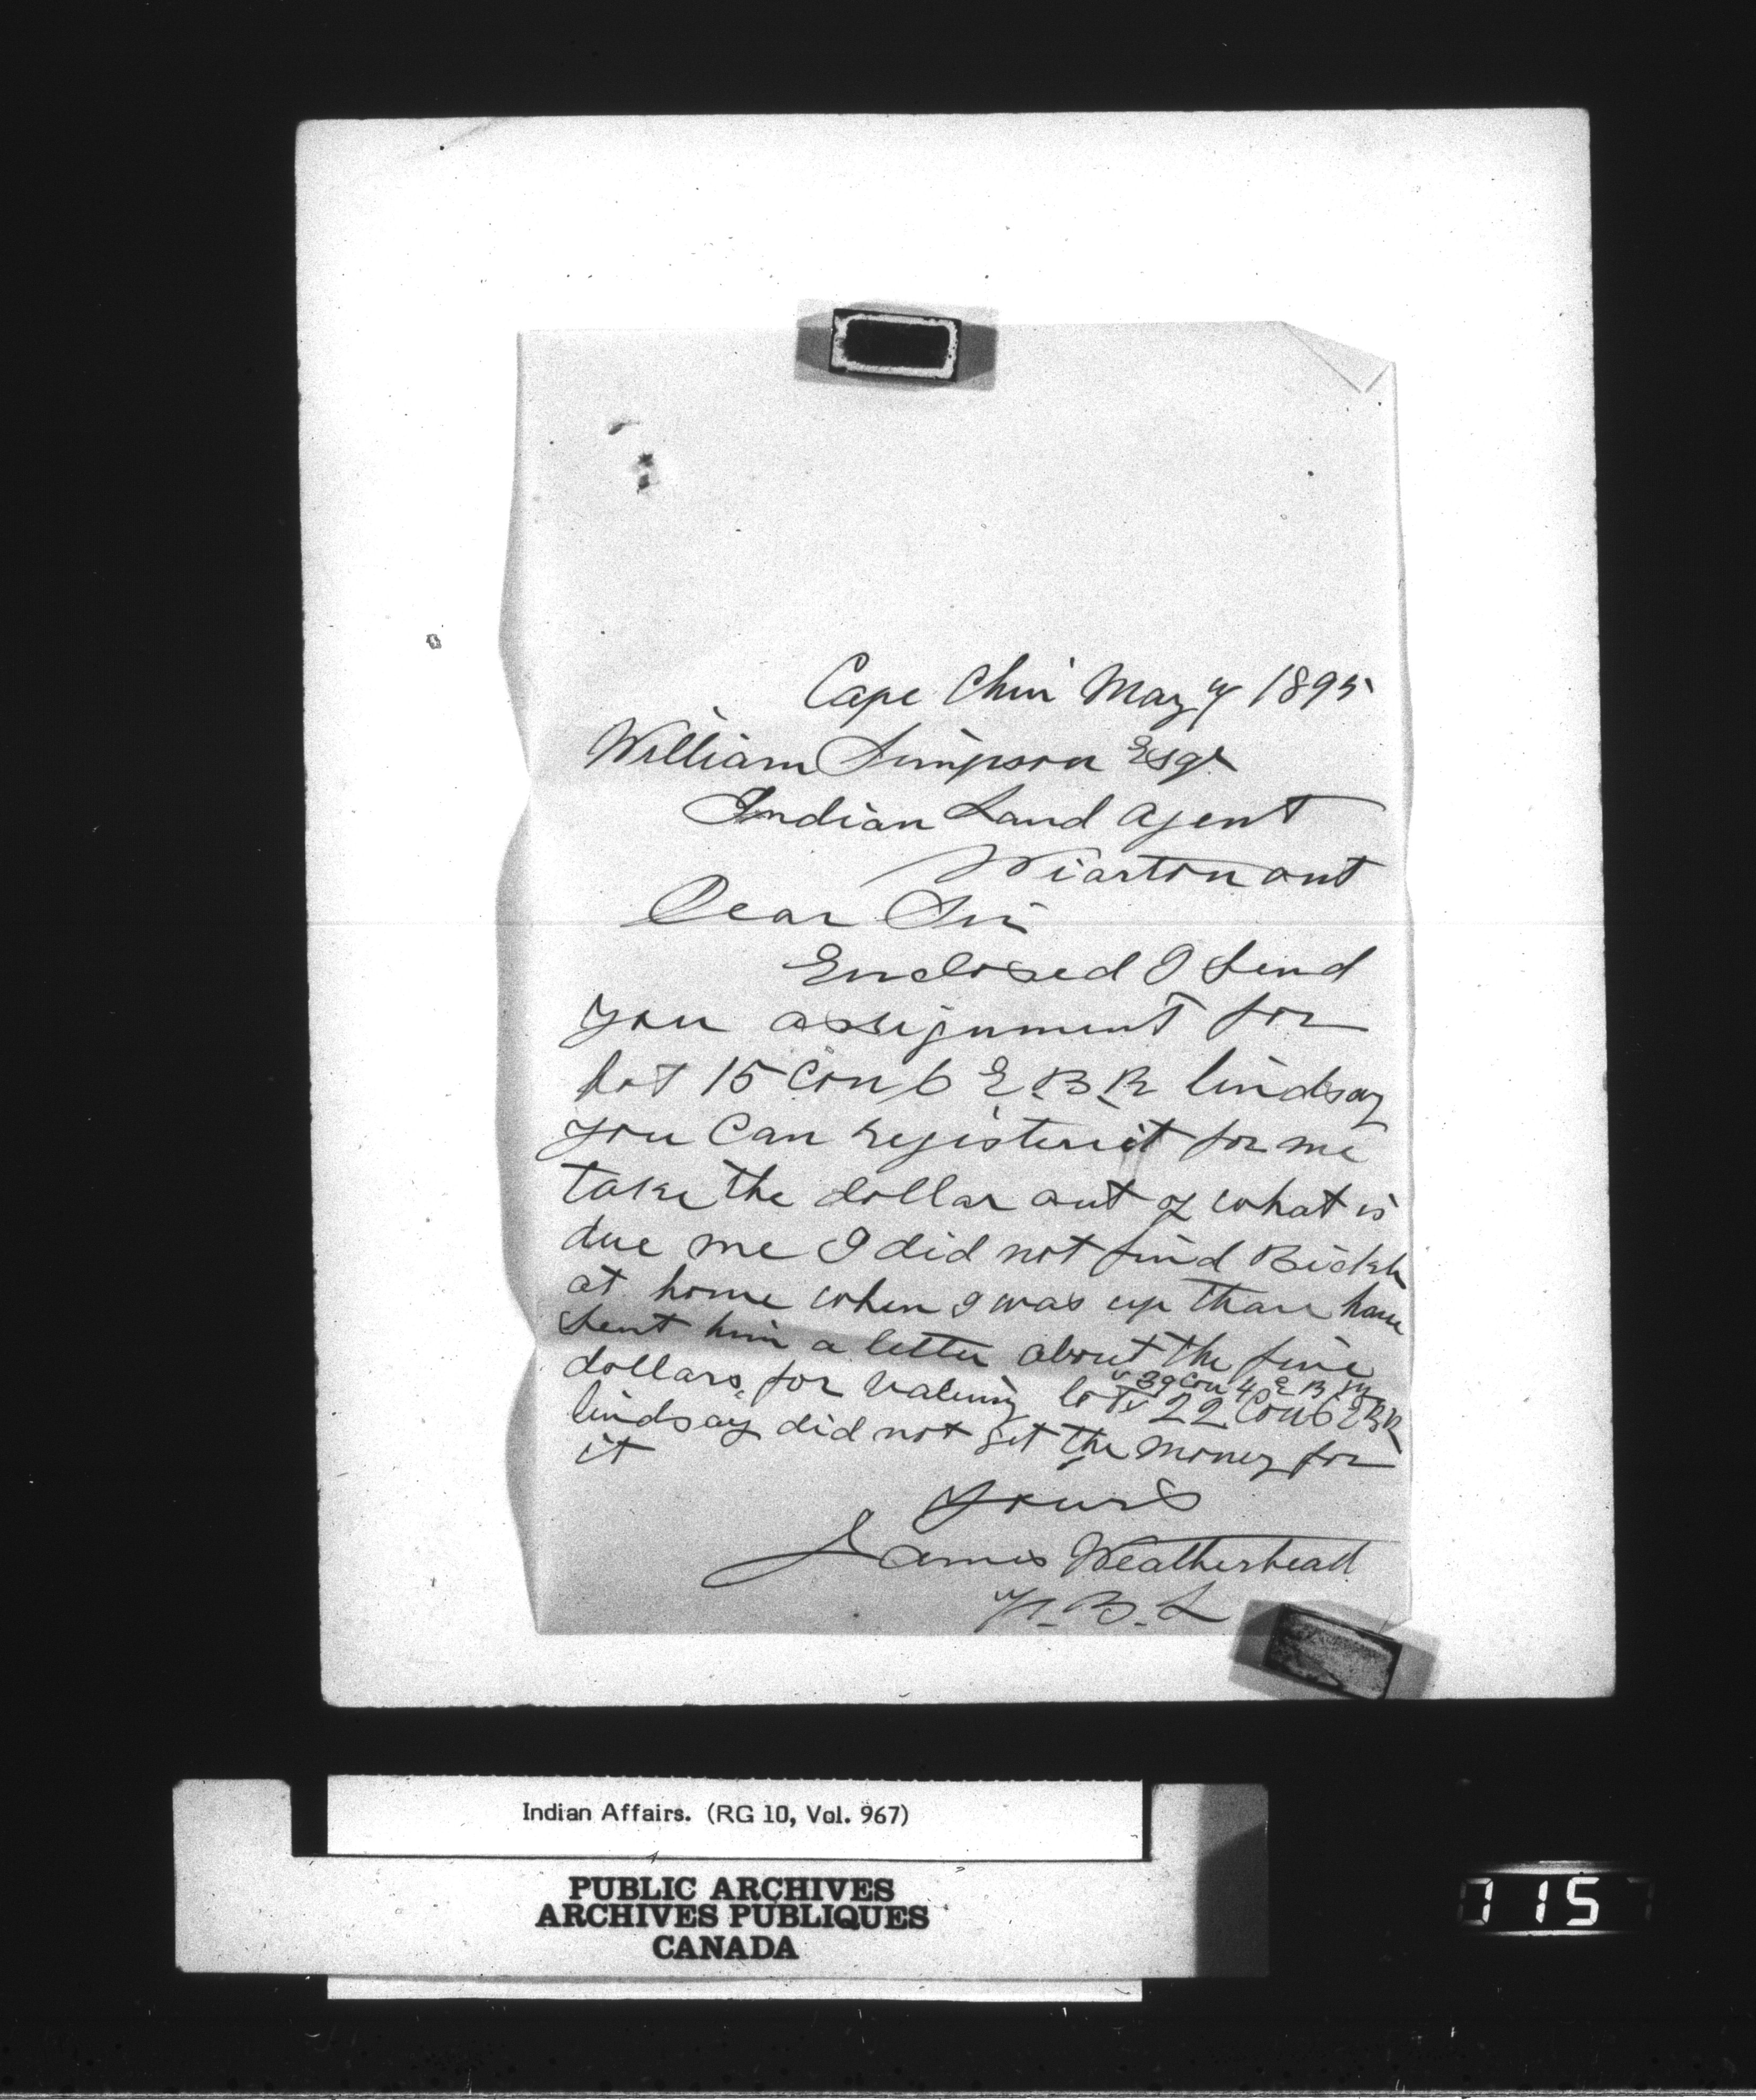 Cape Chin May 4 1895
William Simpson Esqr
Indian Land agent
Wiarton ont
Dear Sir
Enclosed I send
you assignment for
Lot 15 Con 6 E B R lindsay
you can register it for me
take the dollar out of what is
due me I did not find
at home when I was up thare have
sent him a letter about the five
39 Con 4 E B R
dollars for valuing lots 22 Con 6 E B R
lindsay did not get the money for
it
Yours
James Weatherhead
Indian Affairs. (RG 10, Vol. 967)
PUBLIC ARCHIVES
ARCHIVES PUBLIQUES
CANADA
115